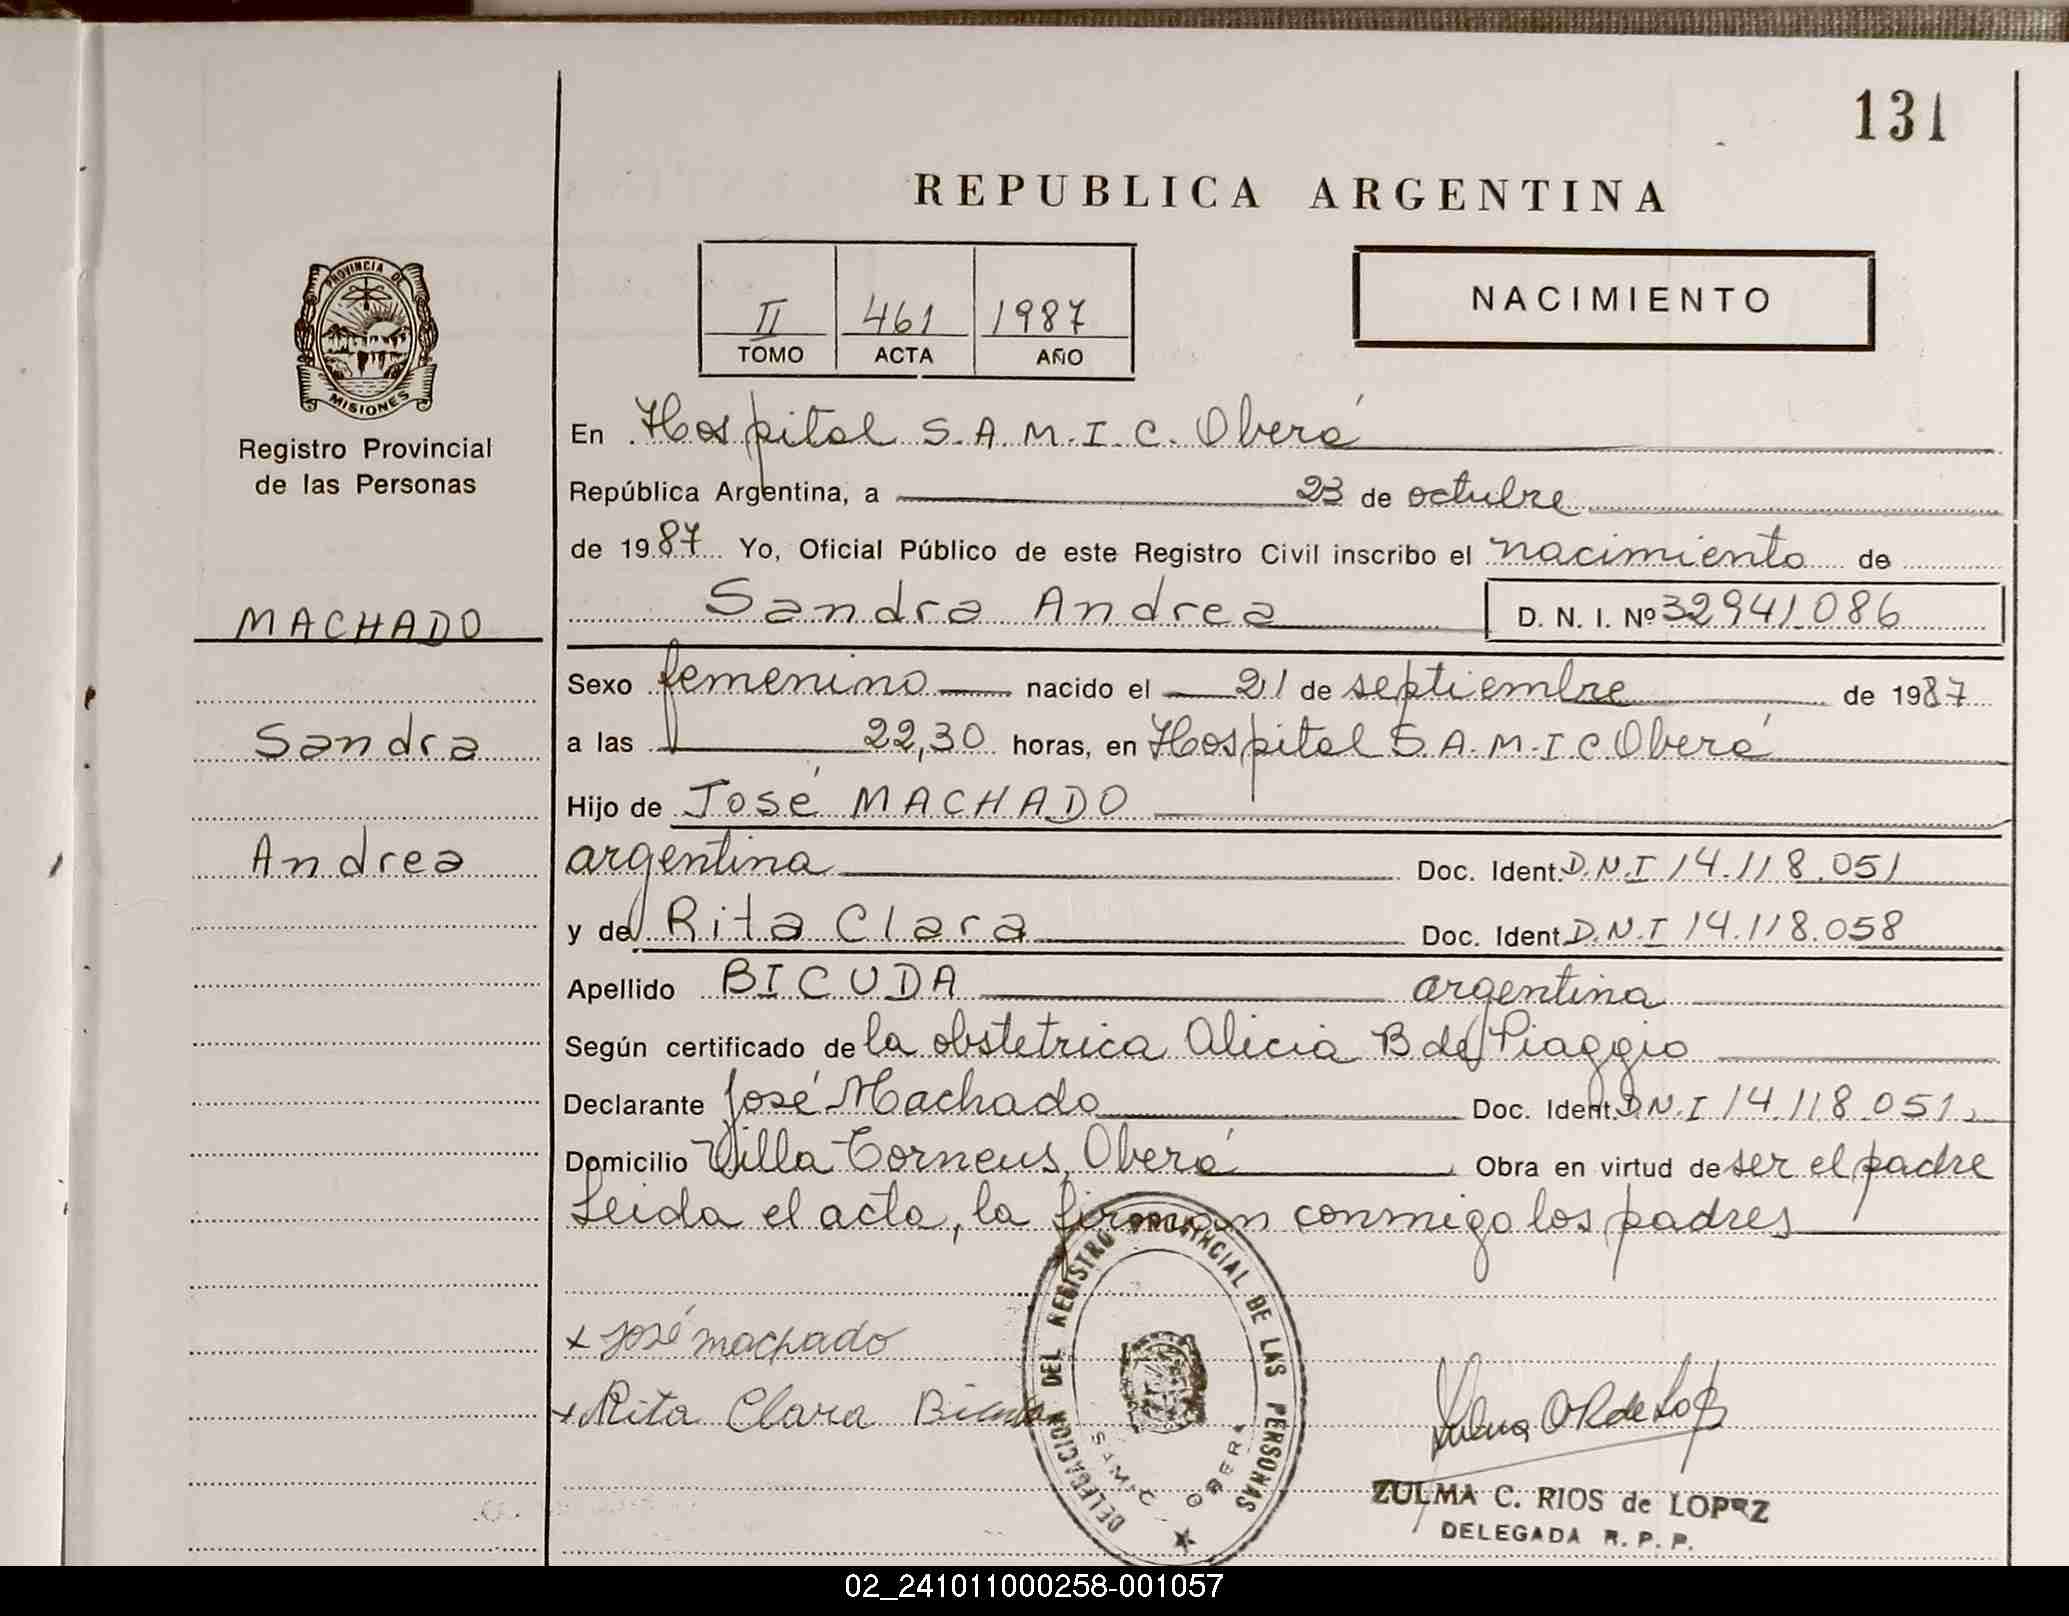 131
REPUBLICA ARGENTINA
II 461 1987
TOMO ACTA AÑO
NACIMIENTO
PROVINCIA DE
MISIONES
Registro Provincial
de las Personas
MACHADO
Sandra
Andrea
En Hospital S.A.M.I.C. Oberá
República Argentina, a 23 de octubre
de 1987 Yo, Oficial Público de este Registro Civil inscribo el nacimiento de
Sandra Andrea D. N. I. Nº 32941.086
Sexo femenino nacido el 21 de septiembre de 1987
a las 22,30 horas, en Hospital S.A.M.I.C Oberá
Hijo de José MACHADO
argentina Doc. Ident. D.N.I 14.118.051
y de Rita Clara Doc. Ident. D.N.I 14.118.058
Apellido BICUDA argentina
Según certificado de la obstetrica Alicia B de Piaggio
Declarante José Machado Doc. Ident. D.N.I 14.118.051,
Domicilio Villa Torneus, Oberá Obra en virtud de ser el padre
Leida el acta, la firman conmigo los padres
x José machado
x Rita Clara Bicuda
DELEGACION DEL REGISTRO PROVINCIAL DE LAS PERSONAS
SAMIC OBERA
ZULMA C. RIOS de LOPEZ
DELEGADA R. P. P.
02_241011000258-001057